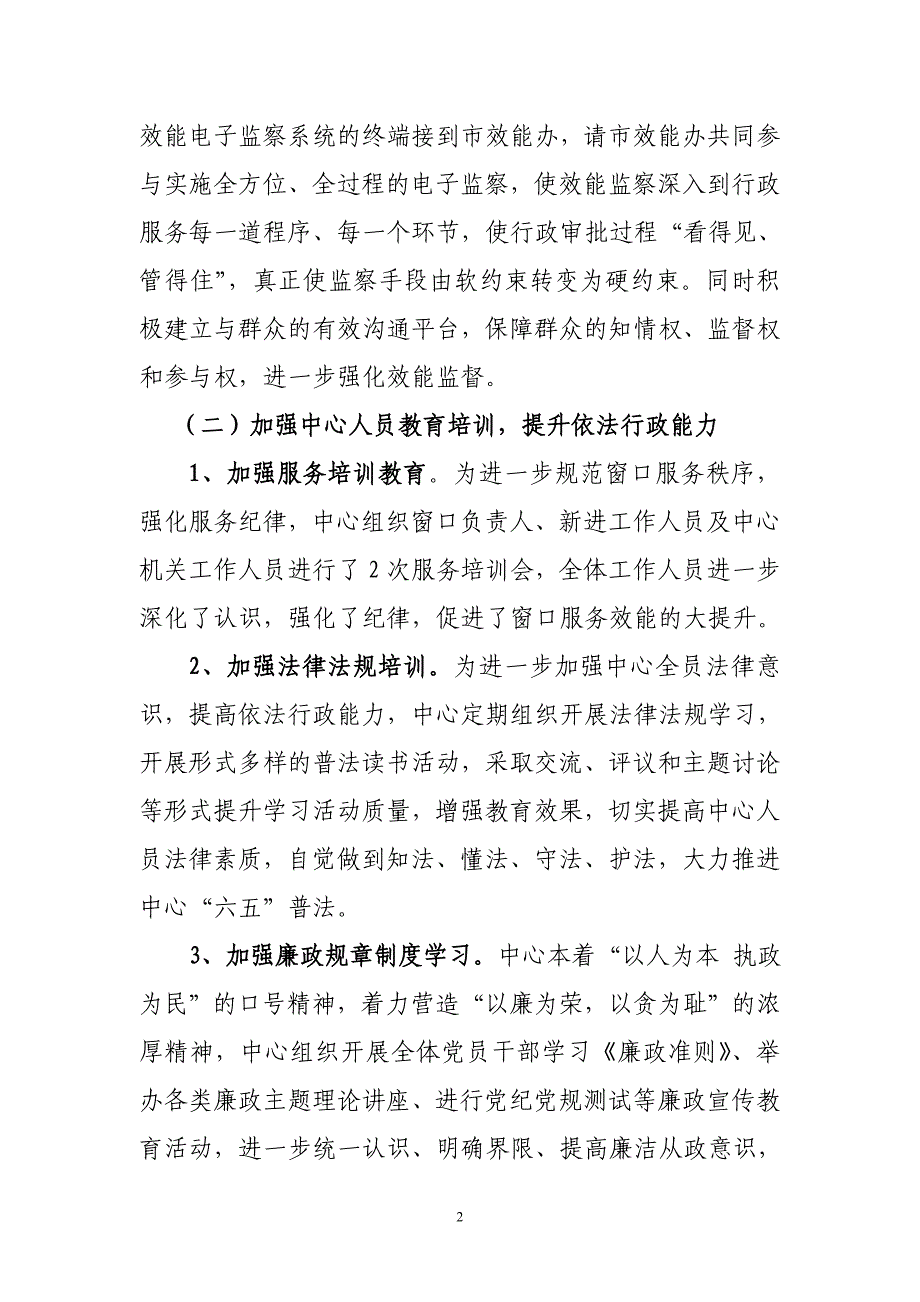 效能电子监察系统的终端接到市效能办，请市效能办共同参
与实施全方位、全过程的电子监察，使效能监察深入到行政
服务每一道程序、每一个环节，使行政审批过程“看得见、
管得住”，真正使监察手段由软约束转变为硬约束。同时积
极建立与群众的有效沟通平台，保障群众的知情权、监督权
和参与权，进一步强化效能监督。
（二）加强中心人员教育培训，提升依法行政能力
1、加强服务培训教育。为进一步规范窗口服务秩序，
强化服务纪律，中心组织窗口负责人、新进工作人员及中心
机关工作人员进行了 2 次服务培训会，全体工作人员进一步
深化了认识，强化了纪律，促进了窗口服务效能的大提升。
2、加强法律法规培训。为进一步加强中心全员法律意
识，提高依法行政能力，中心定期组织开展法律法规学习，
开展形式多样的普法读书活动，采取交流、评议和主题讨论
等形式提升学习活动质量，增强教育效果，切实提高中心人
员法律素质，自觉做到知法、懂法、守法、护法，大力推进
中心“六五”普法。
3、加强廉政规章制度学习。中心本着“以人为本 执政
为民”的口号精神，着力营造“以廉为荣，以贪为耻”的浓
厚精神，中心组织开展全体党员干部学习《廉政准则》、举
办各类廉政主题理论讲座、进行党纪党规测试等廉政宣传教
育活动，进一步统一认识、明确界限、提高廉洁从政意识，
2